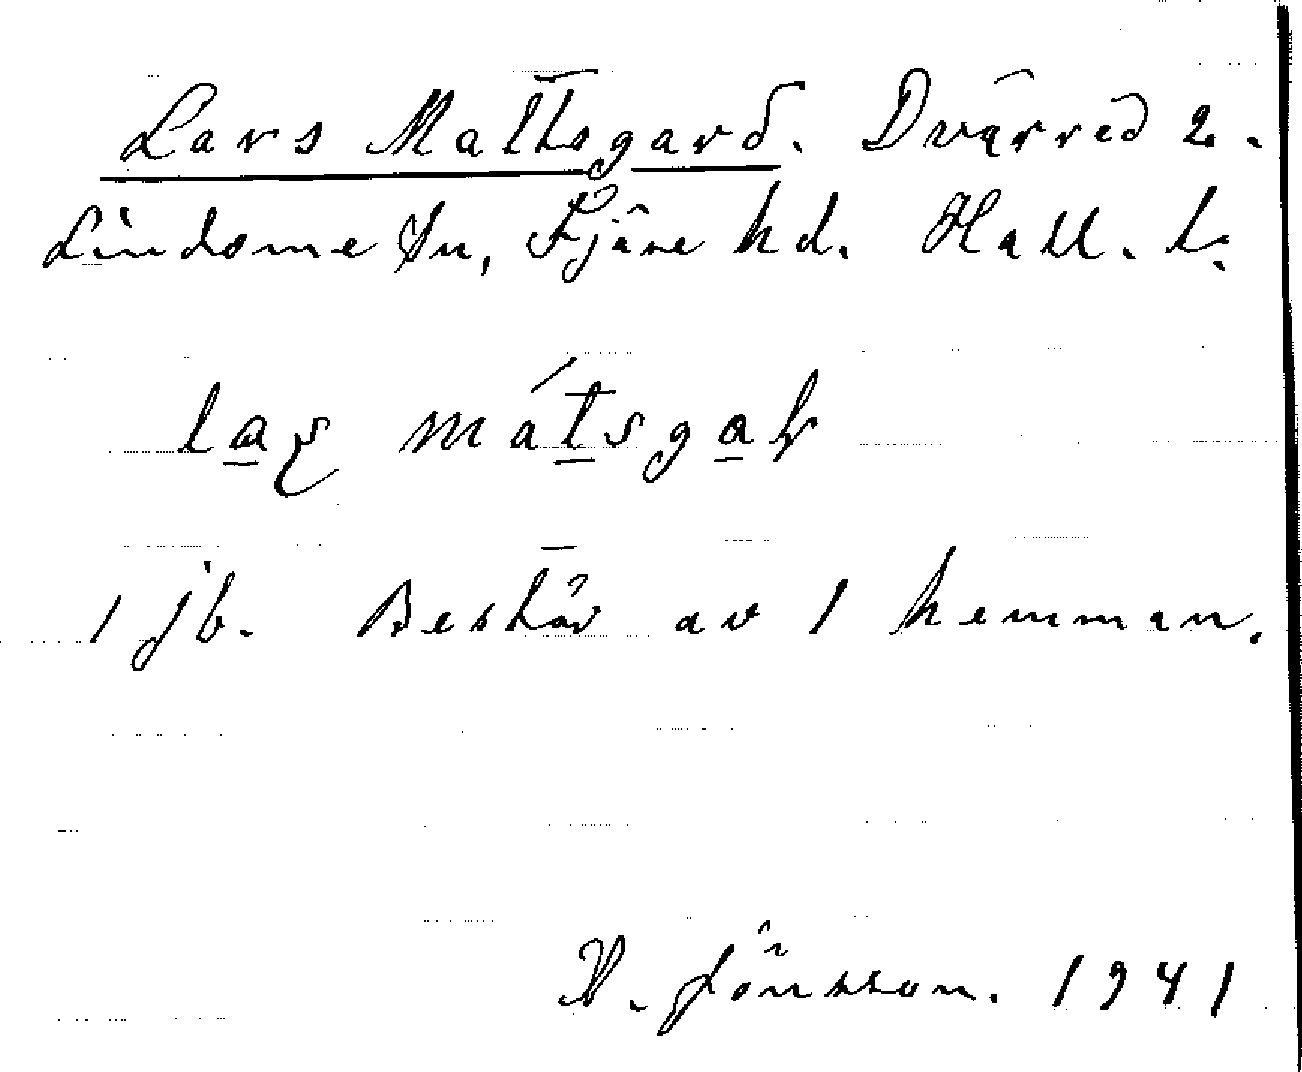 Lars Mattsgård. Dvärred 2.
Lindome sn, Fjäre hd. Hall. l:
1 jb. Består av 1 hemman.
V. Jönsson. 1941